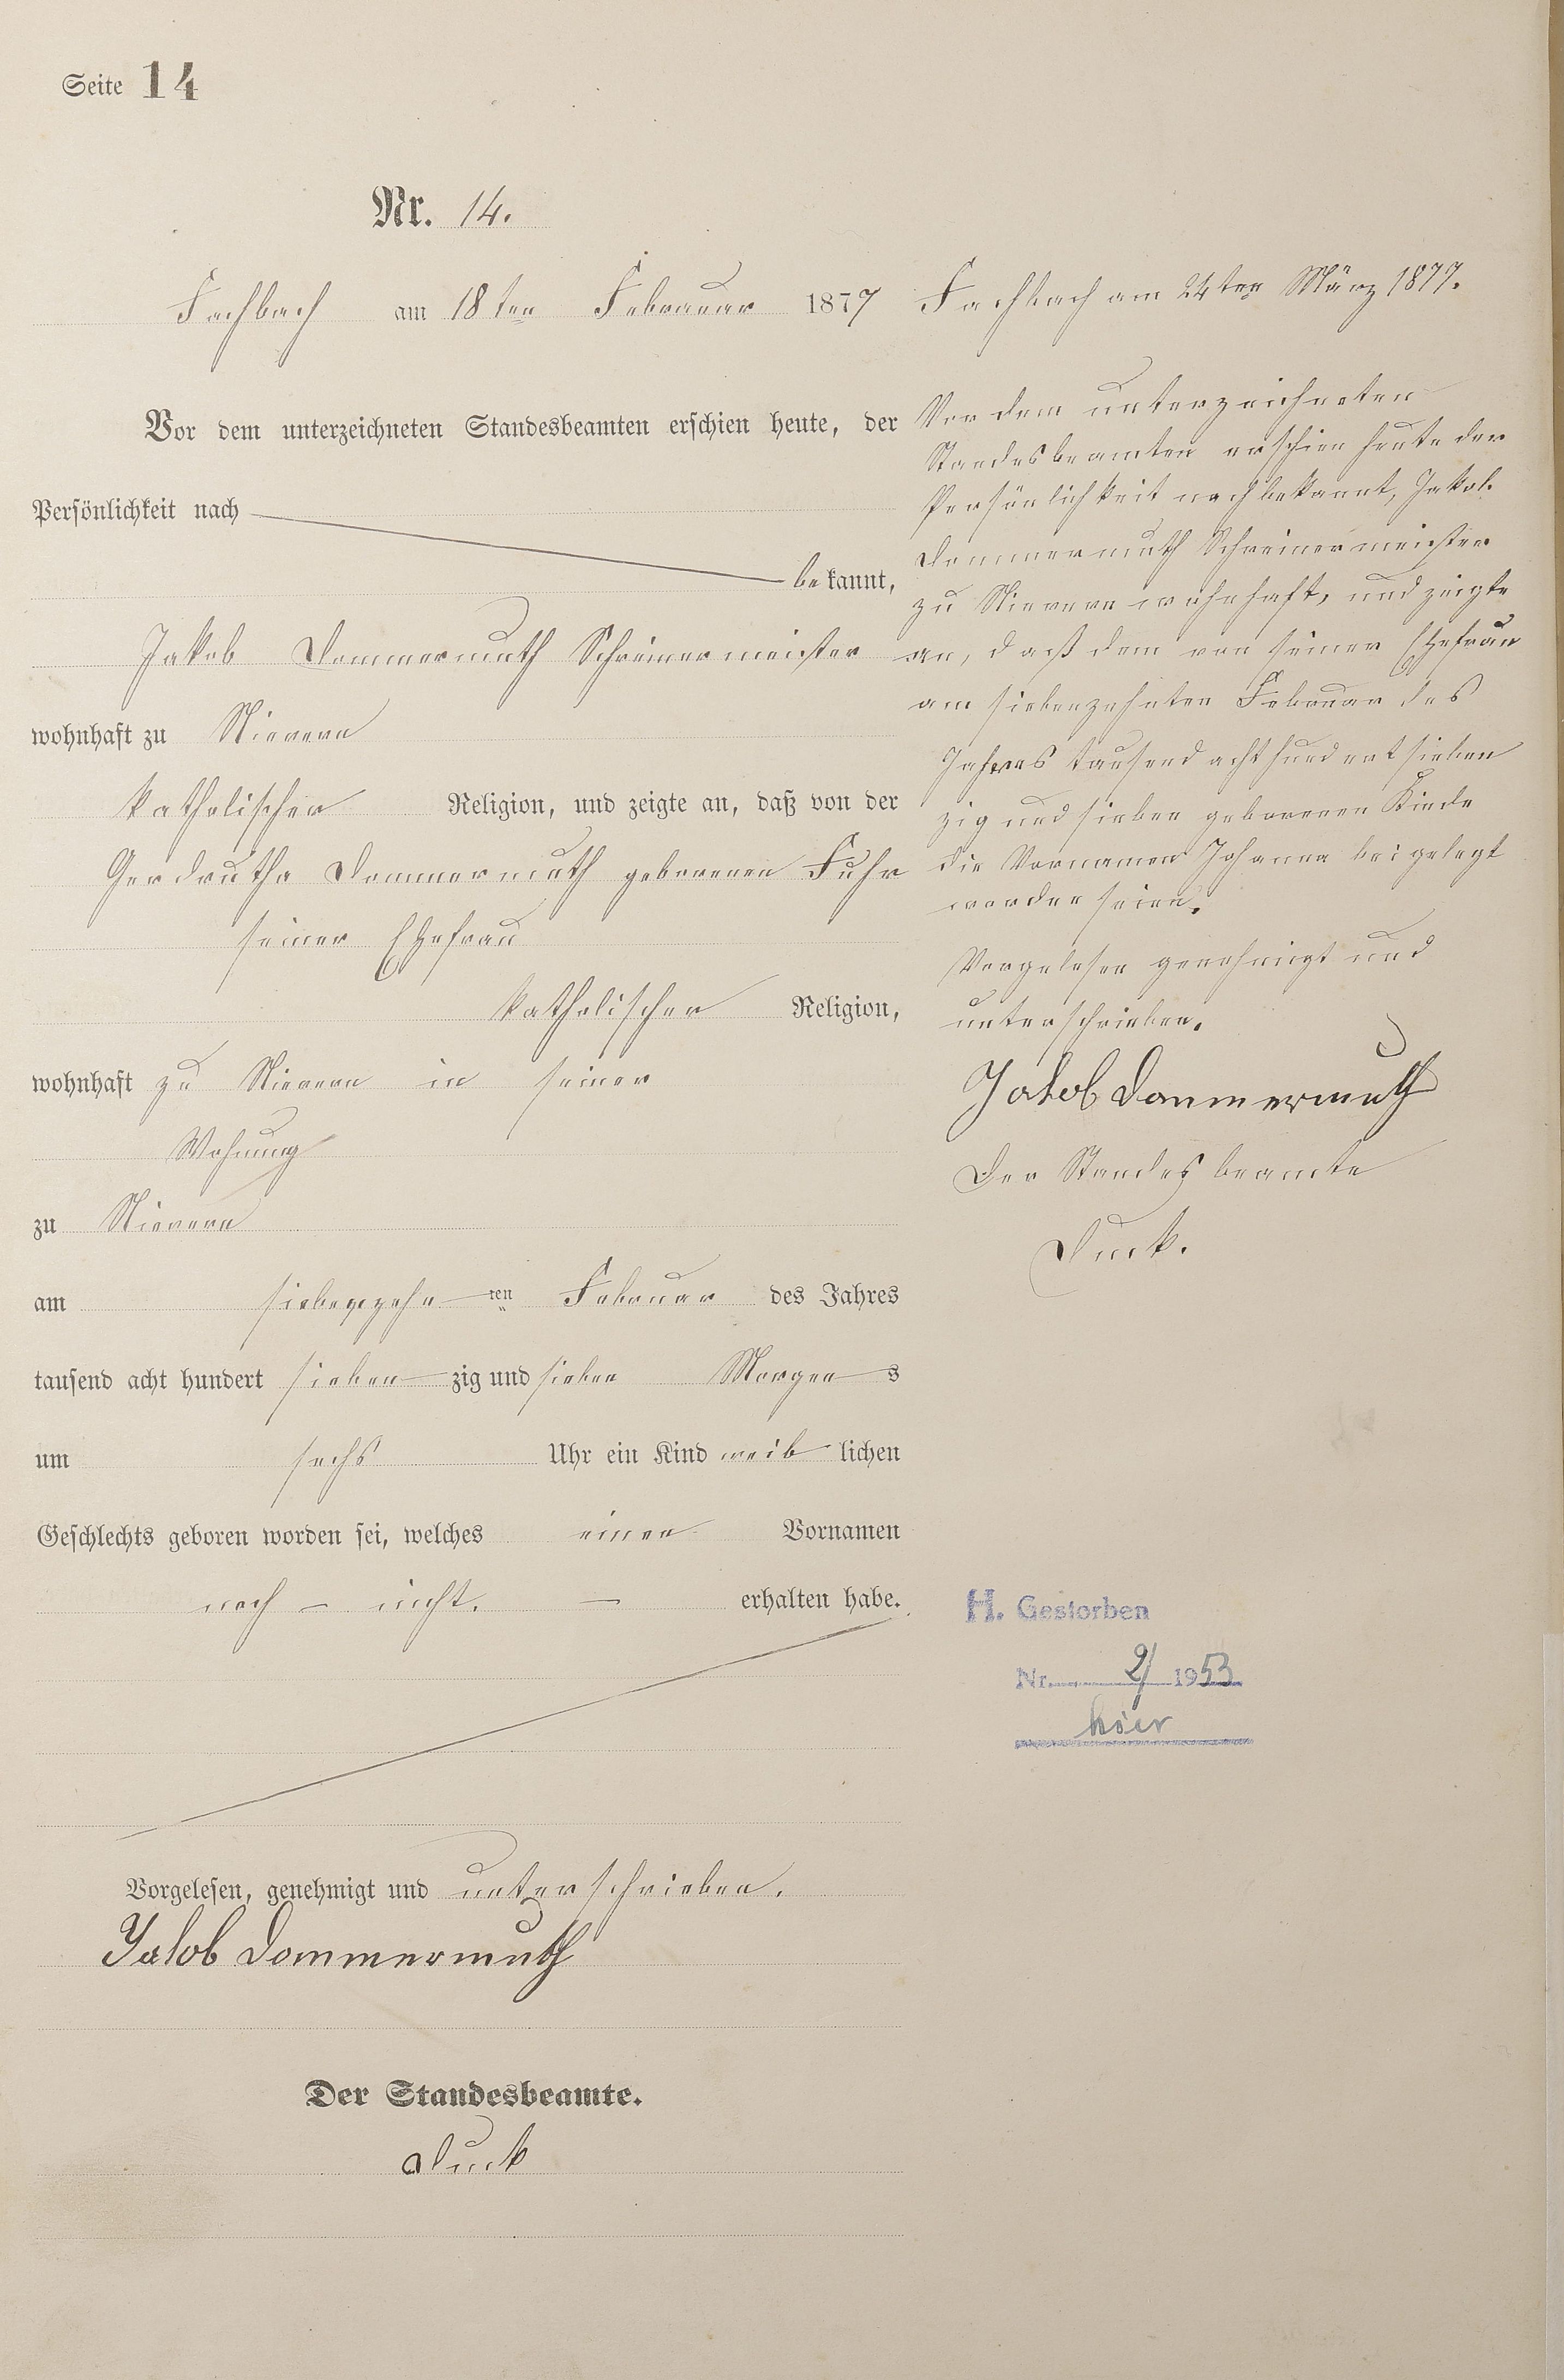 Seite 14
Nr. 14.
Fachbach am 18ten Februar 1877
Vor dem unterzeichneten Standesbeamten erschien heute, der
Persönlichkeit nach
bekannt,
Jakob Dommermuth Schreinermeister
wohnhaft zu Nievern
katholischer Religion, und zeigte an, daß von der
Gerdrutha Dommermuth geborenen Fuhr
seiner Ehefrau
katholischer Religion,
wohnhaft zu Nievern in seiner
Wohnung
zu Nievern
am siebenzehn ten Februar des Jahres
tausend acht hundert sieben zig und sieben Morgen s
um sechs Uhr ein Kind weib lichen
Geschlechts geboren worden sei, welches einen Vornamen
noch – nicht. – erhalten habe.
Vorgelesen, genehmigt und unterschrieben.
Jakob Dommermuth
Der Standesbeamte.
Duck
Fachbach am 24ten März 1877.
Vor dem unterzeichneten
Standesbeamten erschien heute der
Persönlichkeit nach bekannt, Jakob
Dommermuth Schreinermeister
zu Nievern wohnhaft, und zeigte
an, daß dem von seiner Ehefrau
am siebenzehnten Februar des
Jahres tausend acht hundert sieben
zig und sieben geborenen Kinde
die Vornamen Johanna beigelegt
worden seien.
Vorgelesen genehmigt und
unterschrieben.
Jakob Dommermuth
Der Standesbeamte
Duck.
H. Gestorben
Nr. 2/ 1953
hier